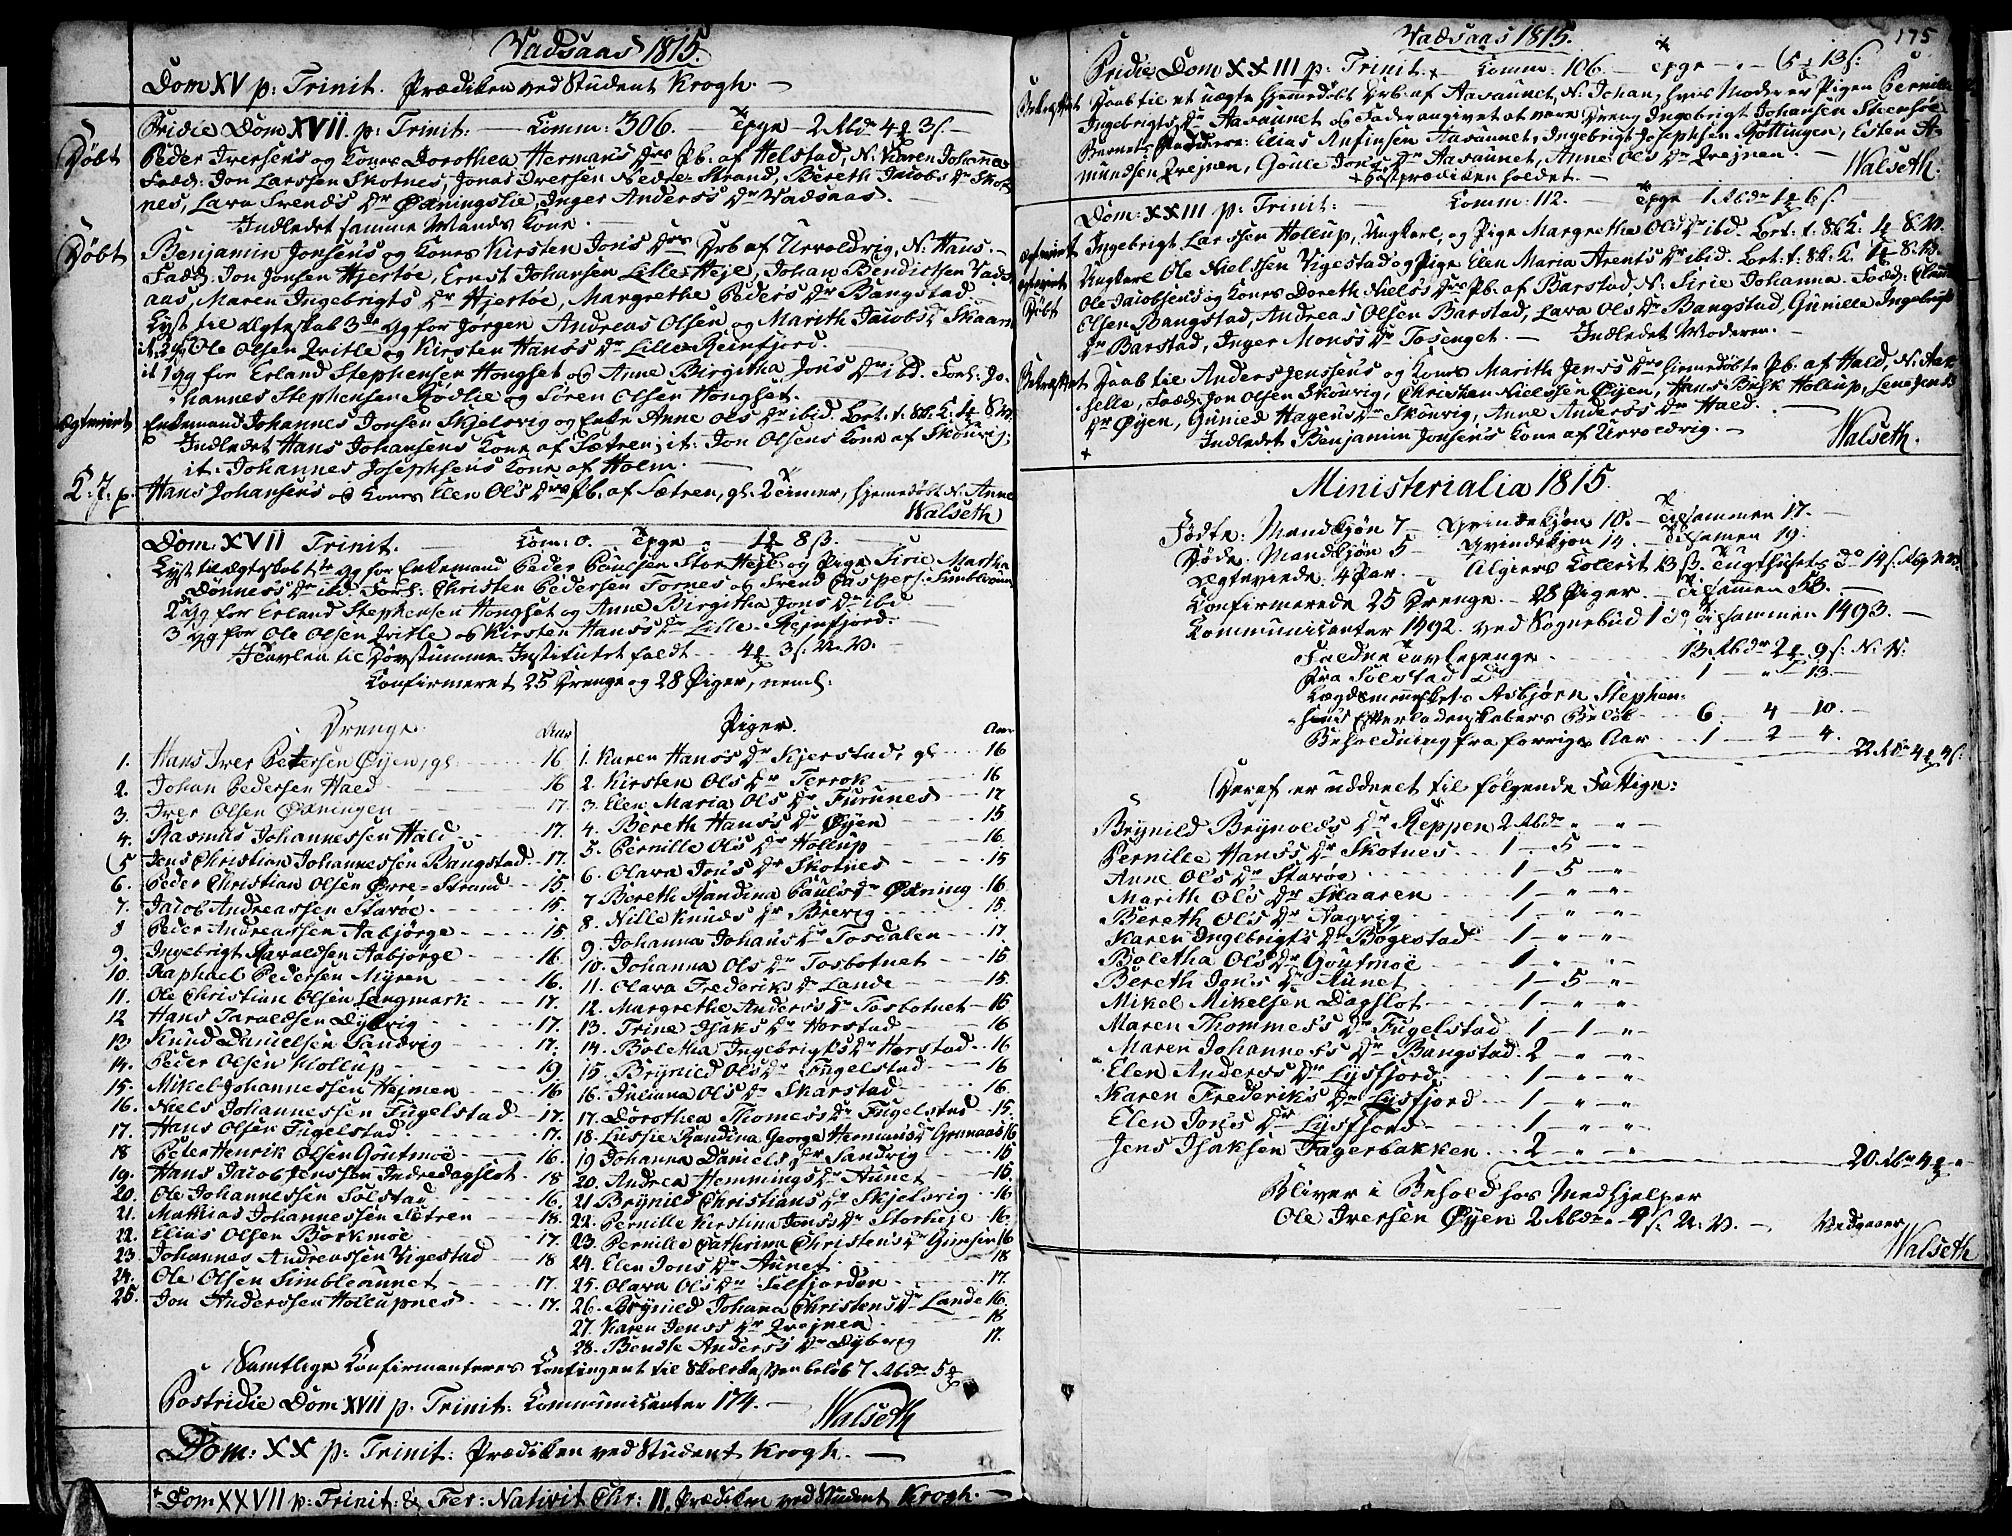 Vadsaas 1815.
Dom XV p: Trinit. Prædiken ved Student Krogh. —
Pridie Dom XVII. p: Trinit: — Comm: 306. — Tpge 2 Rbdr 4 ℔ 3 s. —
Døbt
Peder Iversens og Kones Dorothea Hermans Drs Pb. af Helstad, N. Karen Johanna
Fadd: Jon Larssen Skotnes, Jonas Iversen Nedre-Strand, Bereth Jacobs Dr Skot-
nes, Lara Svends Dr Ødningslie, Inger Anderss Dr Vadsaas. —
Indledet samme Mands Kone. —
Døbt
Benjamin Jonsens og Kones Kirsten Jons Drs Drb af Urvoldvig, N. Hans. —
Fadd: Jon Jonsen Hjertøe, Ernst Johansen Lille-Heje, Johan Bendictsen Vads-
aas, Maren Ingebrigts Dr Hjertøe, Margrethe Peders Dr Bangstad —
Lyst til Ægteskab 3de Gg for Jørgen Andreas Olsen og Marith Jacobs Dr Skaarn
it. 2 Gg Ole Olsen Qvitle og Kirsten Hans's Dr Lille Reinfjord. —
it 1 Gg for Erland Stephensen Hongset og Anne Birgitha Jons Dr ibd. Forl: Jo-
hannes Stephensen Flødlie og Søren Olsen Hongset.
Ægteviet
Enkemand Johannes Jonsen Skjelvig og Enke Anne Ols Dr ibid.
Indledet Hans Johansens Kone af Sætren; it: Jon Olsens Kone af Skonvig;
it: Johannes Josephsens Kone af Holm. —
Hans Johansens og Kones Elen Ols Drs Pb. af Sætren, gl. 2 Timer, hjemedøbt N: Anne
Walseth
Dom. XVII Trinit. — Com: 0. — Tpge „ — 1 ℔ 8 s. —
Lyst til Ægteskab 1te Gg for Enkemand Peder Poulsen Stor Heje og Pige Sirie Martha
Dønness Dr ibd. Forl: Christen Pedersen Tornes og Svend Caspers: Simbleoun
2 Gg for Erland Stephensen Hongset og Anne Birgitha Jons Dr ibd —
3 Gg for Ole Olsen Qvitle og Kirsten Hans's Dr Lille-Reinfjord. —
I Tavlen til Døvstumme Institutet faldt — 4 ℔ 3 s. N. V. —
Confirmeret 25 Drenge og 28 Piger, neml:
Drenge. Aar
1. Hans Iver Petersen Øyen, gl 16
2. Johan Pedersen Haed 16
3. Iver Olsen Ødningen 17.
4. Rasmus Johannessen Hald 17.
5 Jens Christian Johannessen Bangstad 17.
6. Peder Christian Olsen Øvre-Strand 15.
7. Jacob Andreassen Starøe 15.
8 Peder Andreassen Aabjørge 15
9. Ingebrigt Haraldsen Aabjørge 16
10. Raphael Pedersen Myren 16.
11. Ole Christian Olsen Langmark 17.
12 Hans Taraldsen Dybvig 17.
13 Knud Danielsen Sandvig 17.
14. Peder Olsen Hollup 19
15. Mikel Johannessen Hejmen 16
16. Niels Johannessen Fugelstad 17.
17. Hans Olsen Fugelstad 17.
18 Peter Henrik Olsen Goutmoe 16.
19. Hans Jacob Jenssen Indredagslot 18
20. Ole Johannessen Solstad 16.
21. Mathias Johannessen Setren 18.
22. Elias Olsen Borkmoe 17.
23 Johannes Andreassen Vigestad 18
24. Ole Olsen Simbleaunet 17.
25. Jon Anderssen Hollupnes 17.
Piger. Aar
1. Karen Hans's Dr Kjerstad, gl 16
2. Kirsten Ols Dr Terrok 16
3. Elen Maria Ols Dr Furunes 17
4. Bereth Hans's Dr Øyen 15
5. Pernille Ols Dr Hollup 16.
6. Olava Jons Dr Skotnes 15
7 Bereth Randina Pauls Dr Ødning 16
8. Nille Knuds Dr Brevig 15.
9. Johanna Johans Dr Tosdalen 17.
10. Johanna Ols Dr Tosbotnet 15
11. Olava Frederiks Dr Lande 15.
12. Margrethe Anderss Dr Tosbotnet 15
13. Trine Isaks Dr Horstad 16
14. Boletha Ingebrigts Dr Horstad 16
15. Brynild Ols Dr Fugelstad 16
16. Juliana Ols Dr Skarstad 16
17. Dorothea Thomess Dr Fugelstad 15.
18. Lussie Randina George Hermans Dr Grønaas 16
19 Johanna Daniels Dr Sandvig 15
20. Andrea Hemmings Dr Aunet 15.
21 Brynild Christians Dr Skjelvig 16
22. Pernille Kirstina Jonss Dr Storheje 16.
23. Pernille Cathrina Christens Dr 16
24. Elen Jons Dr Aunet 18
25. Olava Ols Dr Felfjorden 17.
26. Brynild Johana Christens Dr Lande 16.
27. Karen Jenss Dr Qvejnen 18
28. Bendte Anderss Dr Dybvig 17.
Samtlige Confirmanternes Contingent til Skolekassen beløb 7 Rbdr 5 ℔
Postridie Dom XVII p. Trinit: Communicanter 174. — Walseth
Dom: XX p: Trinit: Prædiken ved Student Krogh. —
Dom XXVII p: Trinit: & Fer: Nativit Chr: II. Prædiken ved Student Krogh. —
Vadsaas 1815.
175
Pridie Dom XXIII p: Trinit. + Comm: 106. — Tpge — „ — 5 ℔ 13 s:
Bekræftet
Daab til et uægte hjemedøbt Drb. af Aasaunet, N. Johan, hvis Moder er Pigen Pernille
Ingebrigts Dr Aasaunet og Fader angivet at være Dreng Ingebrigt Johansen Steensøe
Barnets Faddere: Elias Anfinsen Aasaunet, Ingebrigt Josephsen Bøttingen, Esten A-
mundsen Qvejnen, Goule Jons Dr Aasaunet, Anne Ols Dr Qvejnen. —
+ Høstprædiken holdet. — Walseth.
Dom: XXIII p: Trinit: — Comm: 112. — Tpge 1 Rbdr 1 ℔ 6 s.
Ægteviet
Ingebrigt Larssen Hollup, Ungkarl, og Pige Margretha Ols Dr ibd.
Ægteviet
Ungkarl Ole Nielssen Vigestad og Pige Elen Maria Arents Dr ibid.
Døbt
Ole Jacobsens og Kones Doreth Niels's Drs Pb. af Barstad, N: Sirie Johanna. Fadd:
Olsen Bangstad, Andreas Olsen Barstad, Lara Ols Dr Bangstad, Gunille Ingebrigt
Dr Barstad, Inger Monss Dr Tosenget. — Indledet Moderen. —
Bekræftet
Daab til Anders Jenssens og Kones Marith Jenss Drs hjemedøbte Pb. af Hald, N: Axe
selle, Fadd: Jon Olsen Skonvig, Christen Nielssen Øyen, Hans Busk Hollup, Lene Jenss
Dr Øyen, Gunied Hagens Dr Skonvig, Anne Anderss Dr Haed. —
Indledet Benjamin Jonsens Kone af Urvoldvig. — Walseth.
Ministerialia 1815.
Fødte: Mandkjøn 7 — Qvindekjøn 10. — Tilsammen 17. —
Døde: Mandkjøn 5 — Qvindekjøn 14. — Tilsamen 19.
Ægteviede: 4 Par. — Algiers Collect 13 s. Tugthuset
Confirmerede 25 Drenge. — 28 Piger. — Tilsammen 53. —
Communicanter 1492. ved Sognebud 1 Tilsammen 1493. —
Faldne Tavlepenge 13 Rbdr 2 ℔ 9 s: N: V:
Fra Solstad 1 — „ — 13. —
Lægdsmennesket Asbjørn Stephen-
sens Efterladenskabers Beløb 6 4 — 10. —
Beholdning fra forrige Aar 1 — 2 — 4.
22 Rbdr 4 ℔ 4 s:
Deraf er uddeelt til følgende Fattige:
Brynild Brynolds Dr Reppen 2 Rbdr „ — „ —
Pernille Hans's Dr Skotnes 1 — 5 — „ —
Anne Ols Dr Starøe 1 — 5 — „ —
Marith Ols Dr Skaaren 1 — „ — „ —
Bereth Ols Dr Aagvig 1 — „ — „ —
Karen Ingebrigts Dr Bøgestad 1 — „ — „ —
Boletha Ols Dr Goutmoe 1 — „ — „ —
Bereth Jons Dr Aunet 1 — 5 — „ —
Mikel Mikelsen Dagslot 1 — „ — „ —
Maren Thommess Dr Fugelstad 1 — 1 — „ —
Maren Johanness Dr Bangstad 2 — „ — „ —
Elen Anderss Dr Lysfjord 1 — „ — „ —
Karen Frederiks Dr Lysfjord 1 — „ — „ —
Elen Jons Dr Lysfjord 1 — „ — „ —
Jens Isaksen Fagerbakken 2 — „ — „ —
20 Rbdr 4 ℔ „
Bliver i Behold hos Medhjelper
Ole Iversen Øyen 2 Rbdr „ 4 s. N. V. — Vedgaaer
Walseth